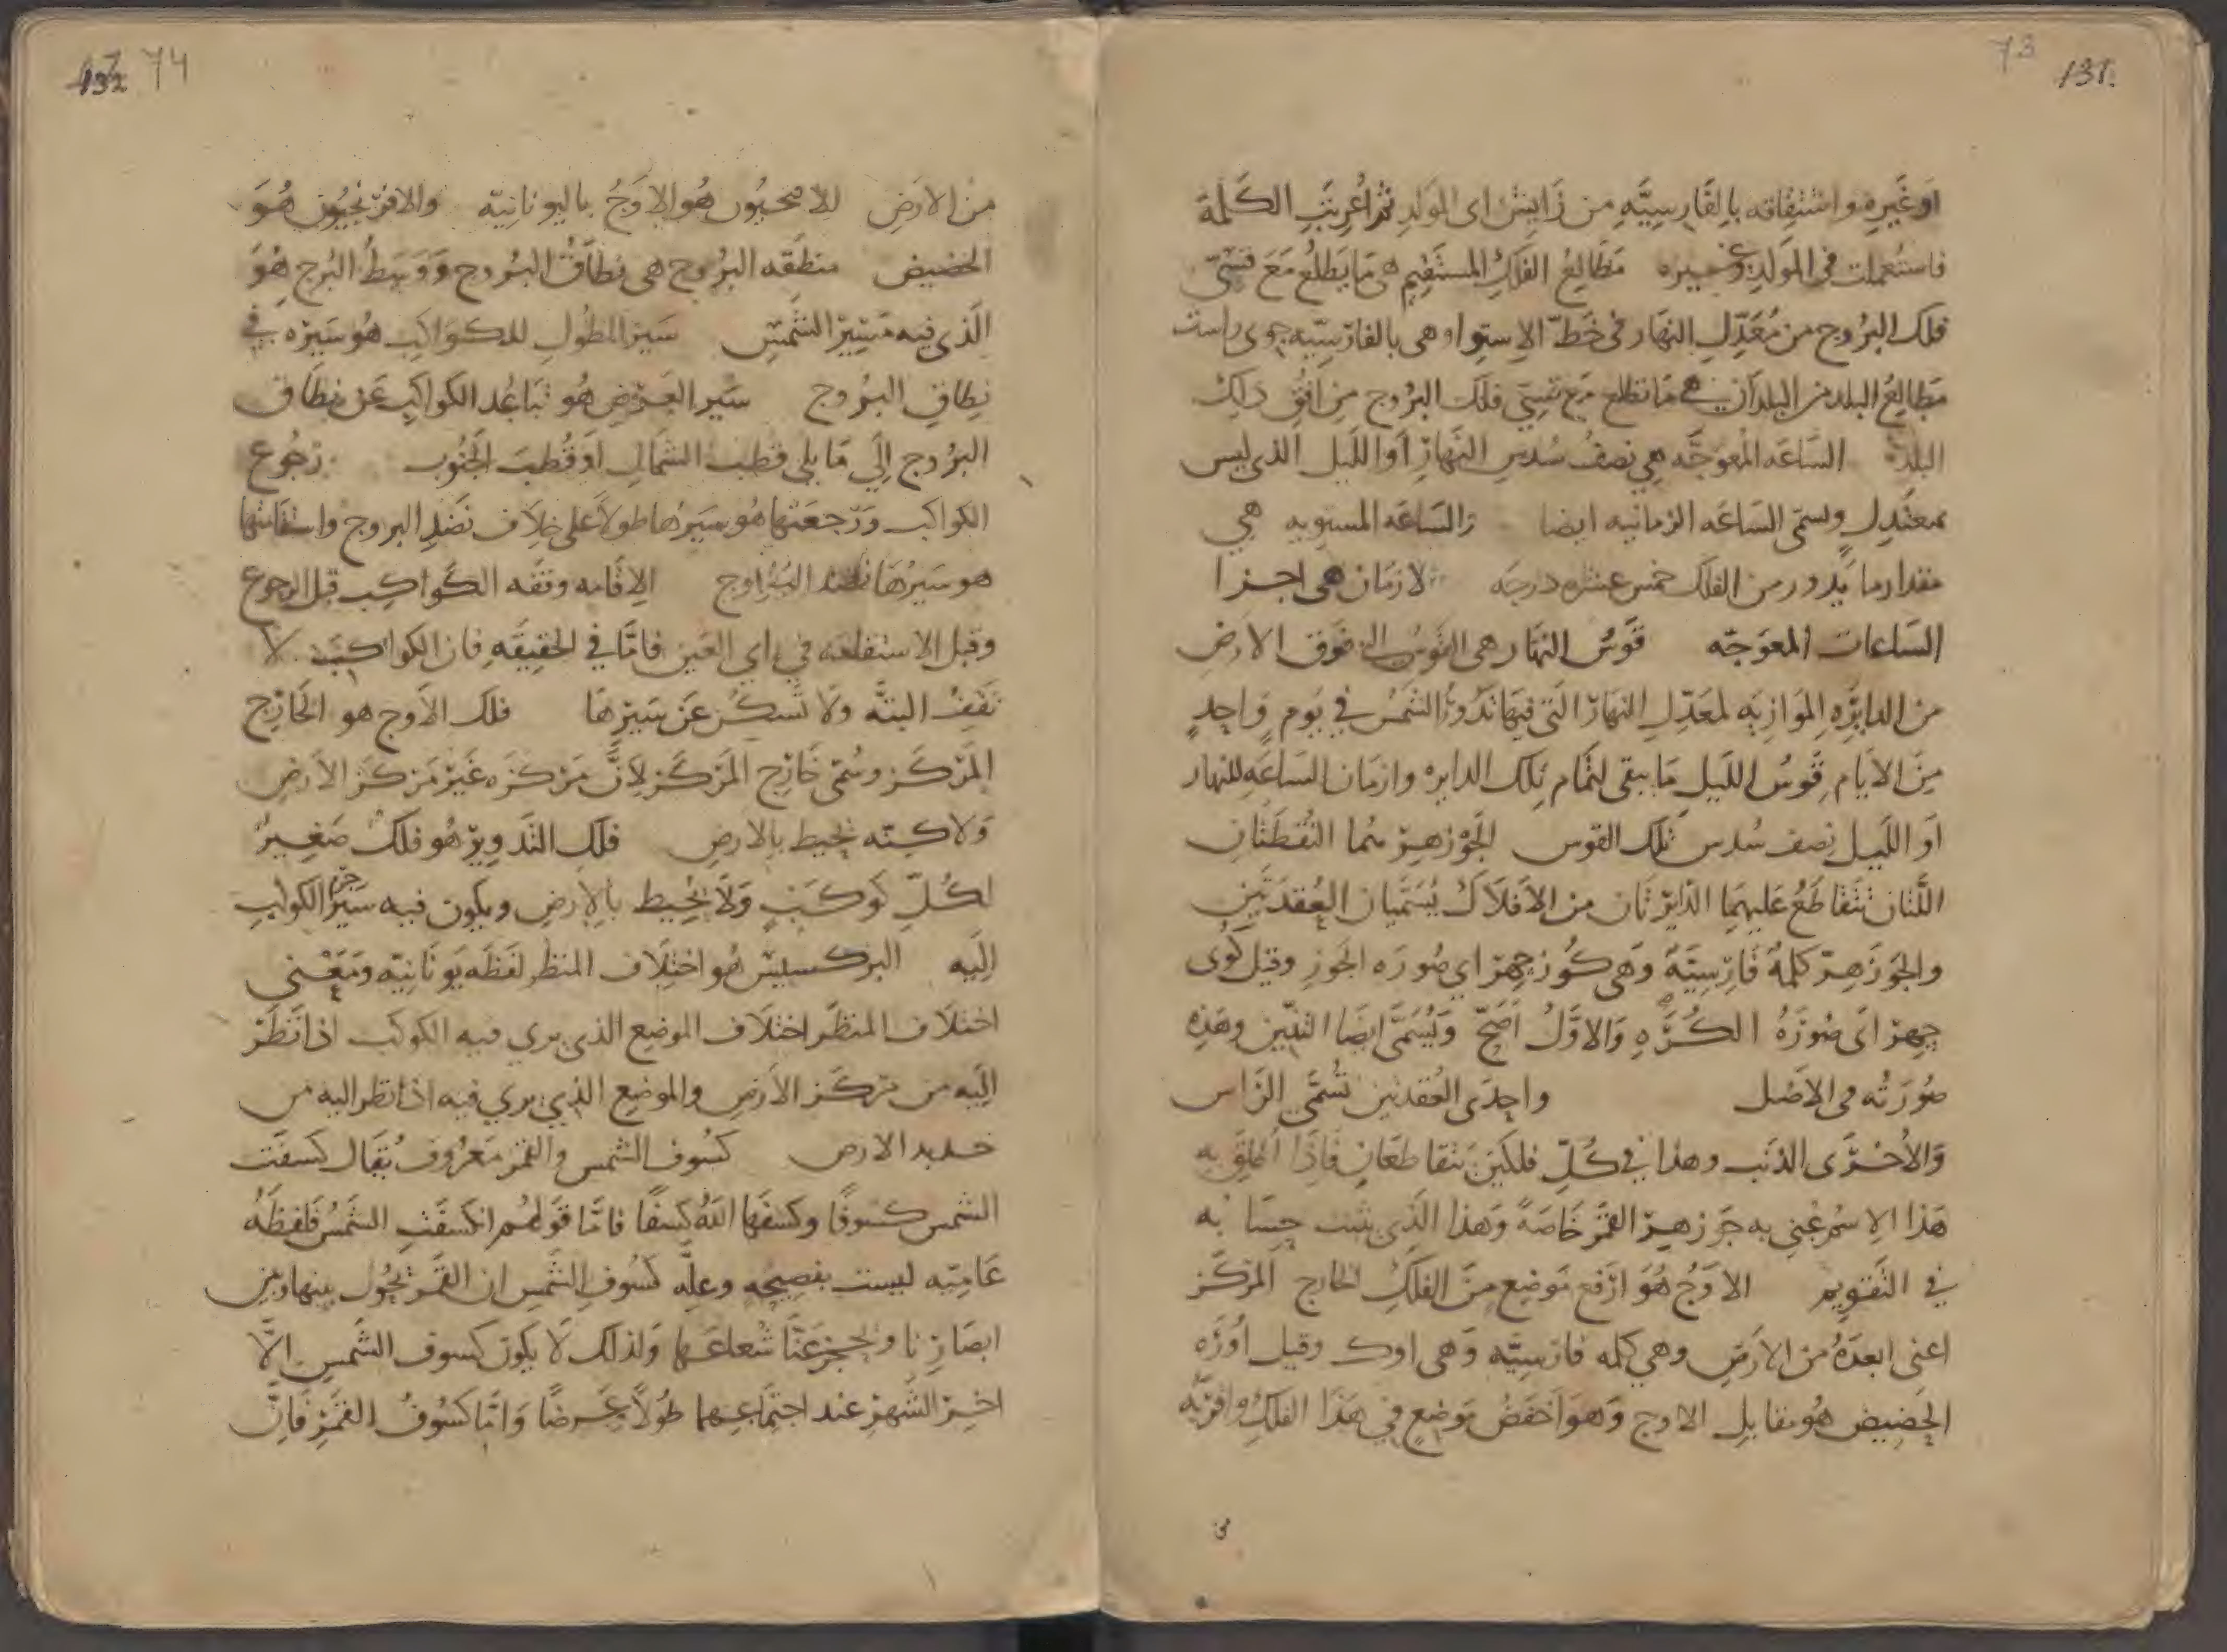 73
131.
او غيره واشتقاقه بالفارسيه من زايش اى المولد ثم اعربت الكلمة
فاستعملت فى المولد وغيره مطالع الفلك المستقيم هى ما يطلع مع قسىّ
فلك البروج من معدّل النهار فى خطّ الاستواء وهى بالفارسيّه جوى راست
مطالع البلد من البلدان هي ما تطلع مع قسىّ فلك البروج من افق ذلك
البلد الساعه المعوجّه هي نصف سُدس النهار او الليل الذى ليس
بمعتدل وتسمى الساعه الزمانيه ايضا والساعه المستويه هي
مقدار ما يدور من الفلك خمس عشره درجه الازمان هى اجزا
الساعات المعوجّه قوس النهار هى القوس التى فوق الارض
من الدايره الموازيه لمعدّل النهار التى فيها تدور الشمس في يوم واحدٍ
من الايام قوس الليل ما يبقى لتمام تلك الدايره وازمان الساعه للنهار
او الليل نصف سُدس تلك القوس الجوزهر هما النقطتان
اللتان تتقاطع عليهما الدايرتان من الافلاك يُسَمَّيان العقدتين
والجوزهر كلمة فارسيّة وهى كوزچهر اي صوره الجوز وقيل كوى
چهر اى صورة الكُرَه والاوّل اصحّ ويُسمّى ايضا التنين وهذه
صُورَته فى الاصل واحدى العقدتين تسمّى الراس
والاخرى الذنب وهذا في كلّ فلكين يتقاطعان فاذا اطلق به
هذا الاسم عُنى به جوزهر القمر خاصةً وهذا الذي يثبت حسابه
في التقويم الاوج هو ارفع موضع من الفلك الخارج المركز
اعنى ابعده من الارض وهي كلمه فارسيّه وهى اوك وقيل اوزه
الحضيض هُو مقابل الاوج وهو اخفض موضع في هذا الفلك واقربه
من
132 74
من الارض للاصحيون هُو الاوج باليونانيّه والافريجيون هُوَ
الحضيض منطقه البروج هى نطاق البروج ووسط البرج هُوَ
الذى فيه مسير الشمس سير الطول للكواكب هو سيره في
نطاق البروج سير العرض هو تباعُد الكواكب عن نطاق
البروج الى ما يلى قطب الشمال او قطب الجنوب رجوع
الكواكب ورجعتها هو سيرها طولاً على خلاف نضد البروج واستقامتها
هو سيرها نضد البروج الاقامه وقفه الكواكب قبل الرجوع
وقبل الاستقامه في راي العين فامّا في الحقيقه فان الكواكب لا
تقف البته ولا تسكن عن سيرها فلك الاوج هو الخارج
المركز وسُمّى خارج المركز لانّ مركزه غير مركز الارض
ولاكنّه يحيط بالارض فلك التدوير هُو فلكٌ صغيرٌ
لكلّ كوكبٍ ولا يُحيط بالارض ويكون فيه سير جرم الكواكب
اليه البركسيس هُو اختلاف المنظر لفظه يونانيّه ومعنى
اختلاف المنظر اختلاف الموضع الذى يرى فيه الكوكب اذا نظر
اليه من مركز الارض والموضع الذي يري فيه اذا نظر اليه من
حدبه الارض كسُوف الشمس والقمر معروف يُقال كسفت
الشمس كسوفًا وكسفها الله كسفًا فامّا قولهُم انكسفت الشمس فلفظه
عاميّه ليست بفصيحه وعلّه كسوف الشمس ان القمر تحُول بينها وبين
ابصارنا ويحجز عنّا شعاعها ولذلك لا يكون كسوف الشمس الّا
اخر الشهر عند اجتماعهما طولاً وعرضًا وامّا كسُوفُ القمر فانّ